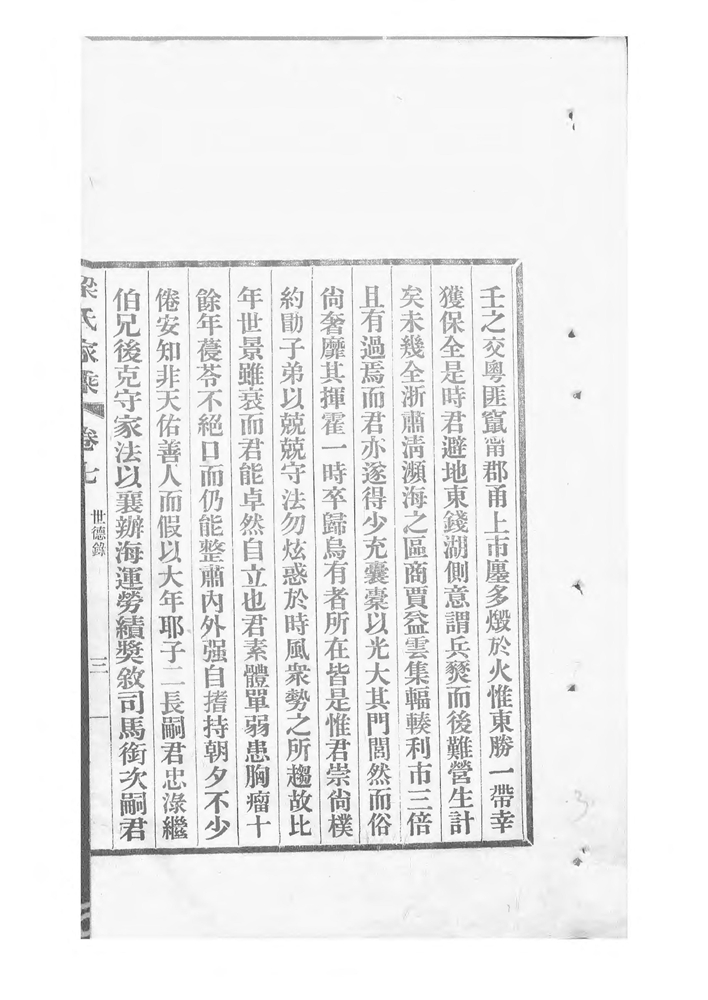 壬之交粵匪竄甯郡甬上市廛多燬於火惟東勝一帶幸
獲保全是時君避地東錢湖側意謂兵燹而後難營生計
矣未幾全浙肅淸瀕海之區商賈益雲集輻輳利市三倍
且有過焉而君亦遂得少充囊橐以光大其門閭然而俗
尙奢靡其揮霍一時卒歸烏有者所在皆是惟君崇尙樸
約勖子弟以兢兢守法勿炫惑於時風衆勢之所趨故比
年世景雖衰而君能卓然自立也君素體單弱患胸瘤十
餘年葠苓不絕口而仍能整肅內外强自撐持朝夕不少
倦安知非天佑善人而假以大年耶子二長嗣君忠淥繼
伯兄後克守家法以襄辦海運勞績奬敘司馬銜次嗣君
梁氏家乘
卷七
世德錄
三
3